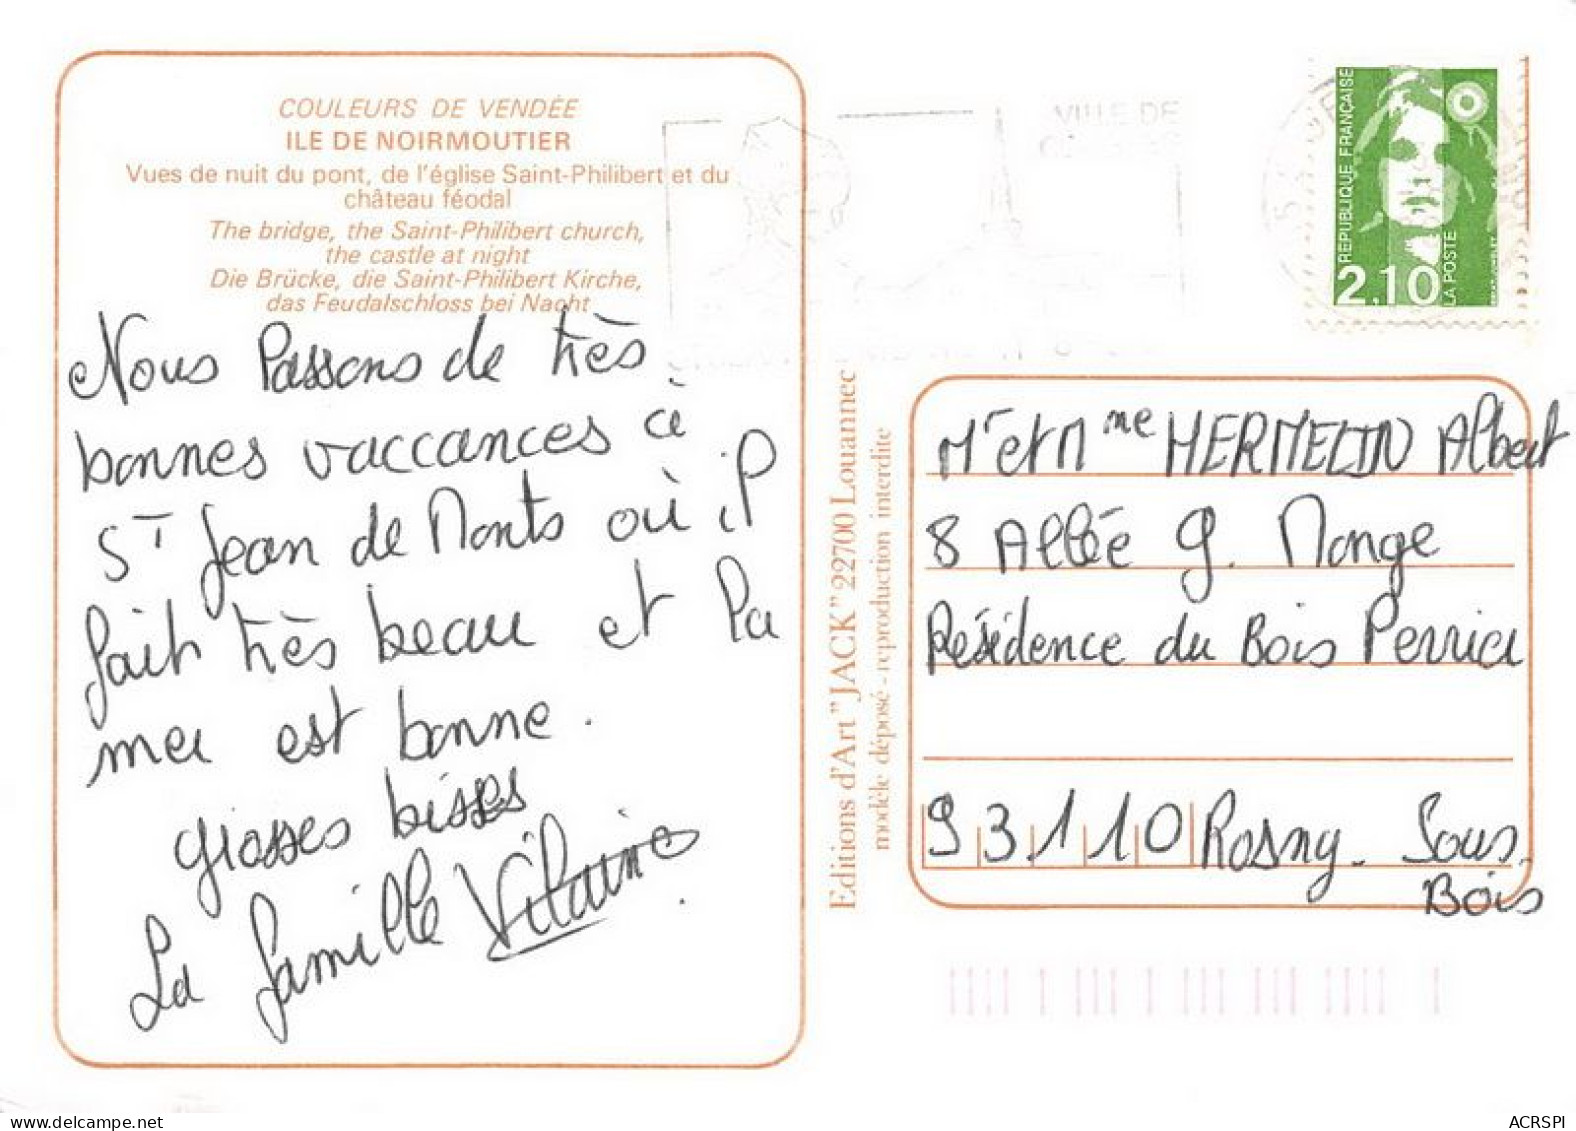 COULEURS DE VENDÉE
ILE DE NOIRMOUTIER
Vues de nuit du pont, de l'église Saint-Philibert et du
château féodal
The bridge, the Saint-Philibert church,
the castle at night
Die Brücke, die Saint-Philibert Kirche,
das Feudalschloss bei Nacht
Nous Passons de très
bonnes vaccances à
St Jean de Monts où il
fait très beau et la
mer est bonne.
grosses bisses
La famille Vilaine
Editions d'Art "JACK" 22700 Louannec
modèle déposé - reproduction interdite
VILLE DE
REPUBLIQUE FRANÇAISE
2,10
LA POSTE
Mr et Mme HERMELIN Albert
8 Allée G. Monge
Résidence du Bois Perrier
93110 Rosny-Sous-
Bois
ACRSPI